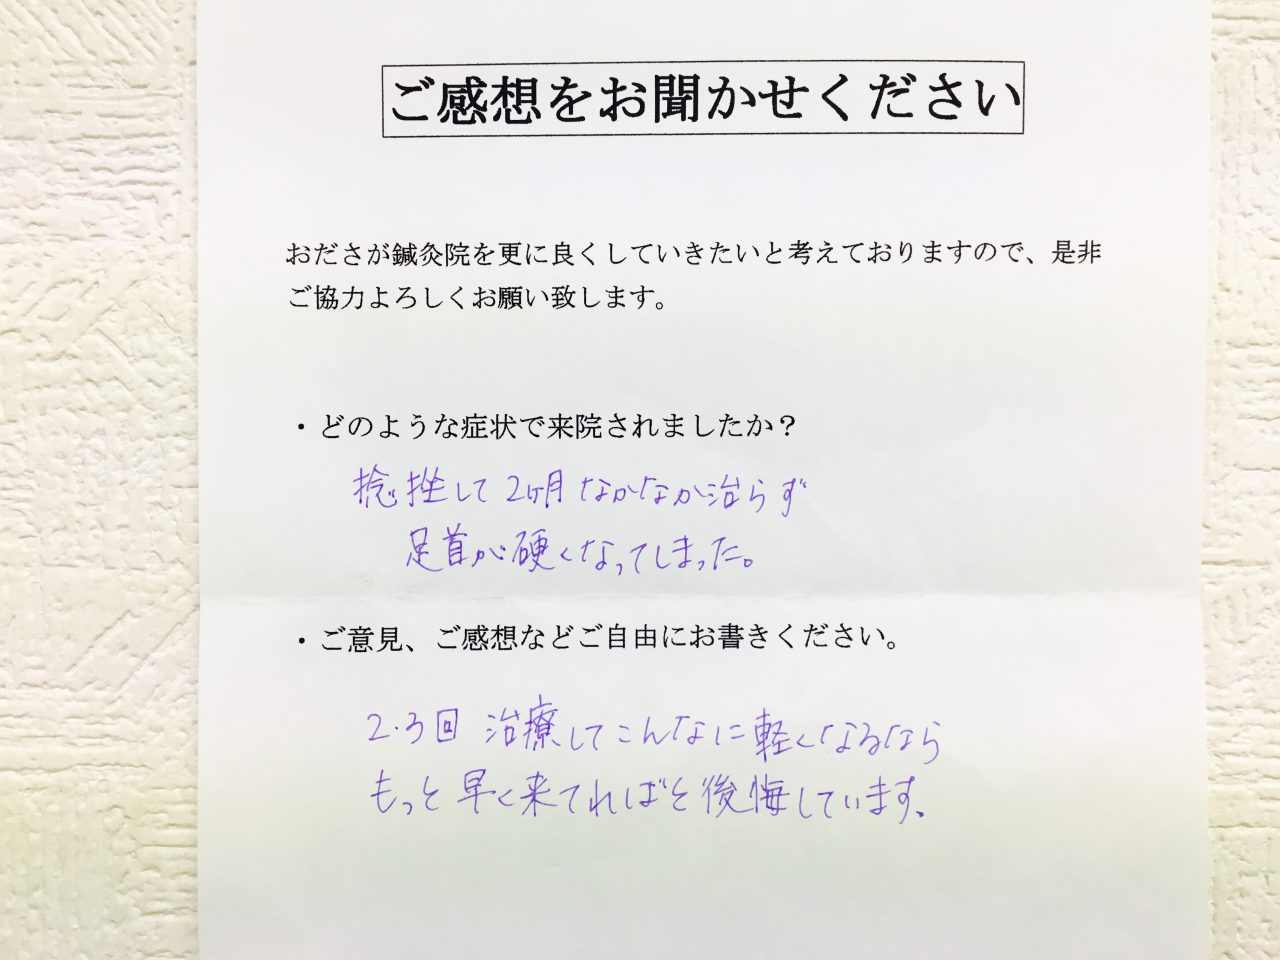 ご感想をお聞かせください
おださが鍼灸院を更に良くしていきたいと考えておりますので、是非
ご協力よろしくお願い致します。
・どのような症状で来院されましたか？
捻挫して2ヶ月なかなか治らず
足首が硬くなってしまった。
・ご意見、ご感想などご自由にお書きください。
2.3回 治療してこんなに軽くなるなら
もっと早く来てればと後悔しています。